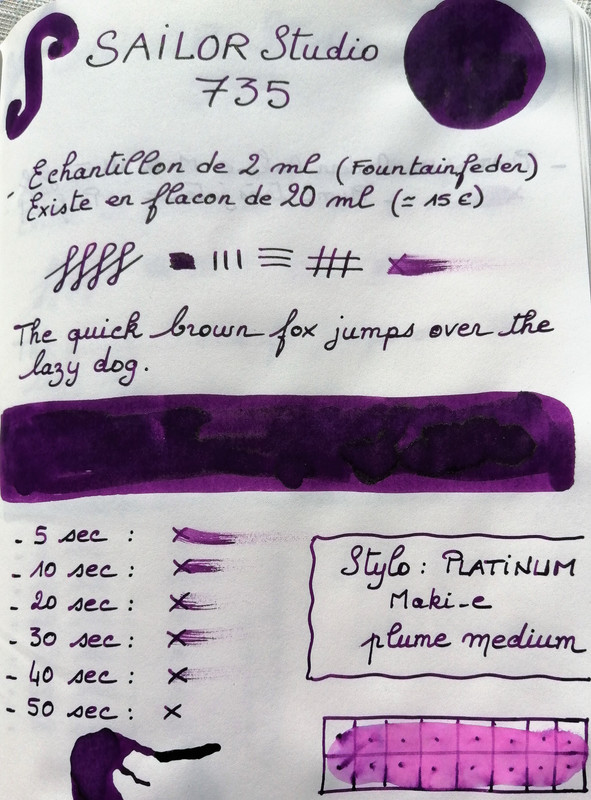 SAiLOR Studio
735
Echantillon de 2 ml (Fountainfeder)
Existe en flacon de 20 ml (≃ 15 €)
The quick brown fox jumps over the
lazy dog.
- 5 sec :
- 10 sec :
- 20 sec :
- 30 sec :
- 40 sec :
- 50 sec :
Stylo : PLATiNUM
Maki-e
plume medium